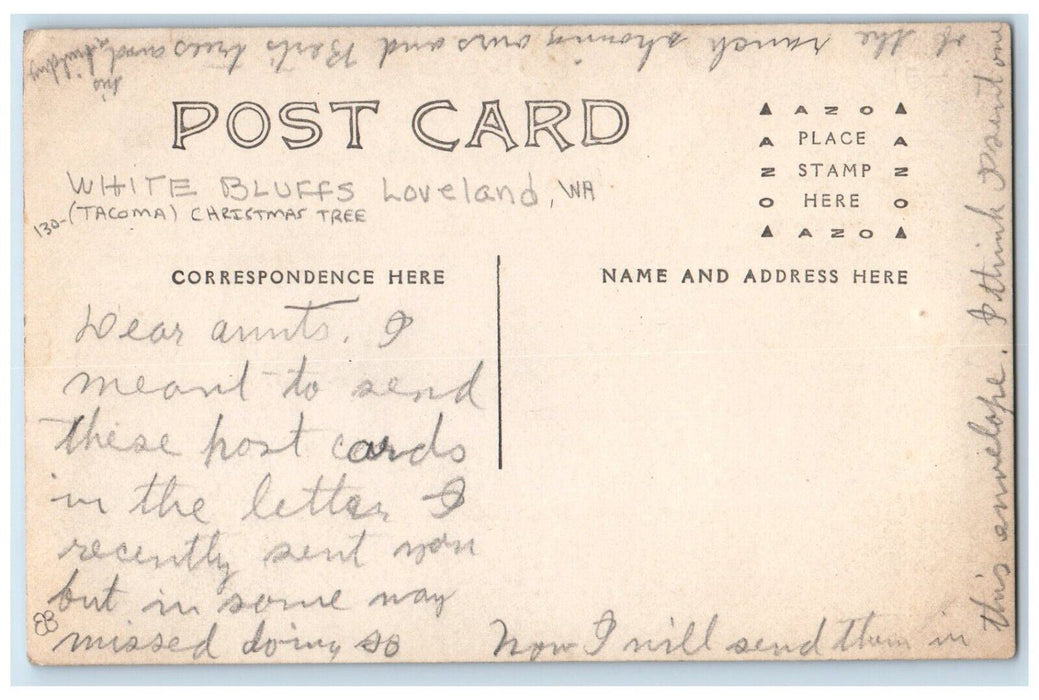 POST CARD
AZO
PLACE
STAMP
HERE
AZO
AZO
AZO
WHITE BLUFFS Loveland, WA
130-(TACOMA) CHRISTMAS TREE
CORRESPONDENCE HERE
NAME AND ADDRESS HERE
Dear aunts. I
meant to send
these post cards
in the letter I
recently sent you
but in some way
missed doing so
88
Now I will send them in
this envelope. I think I sent one
of the ranch showing ours and Bert's trees and
his
building